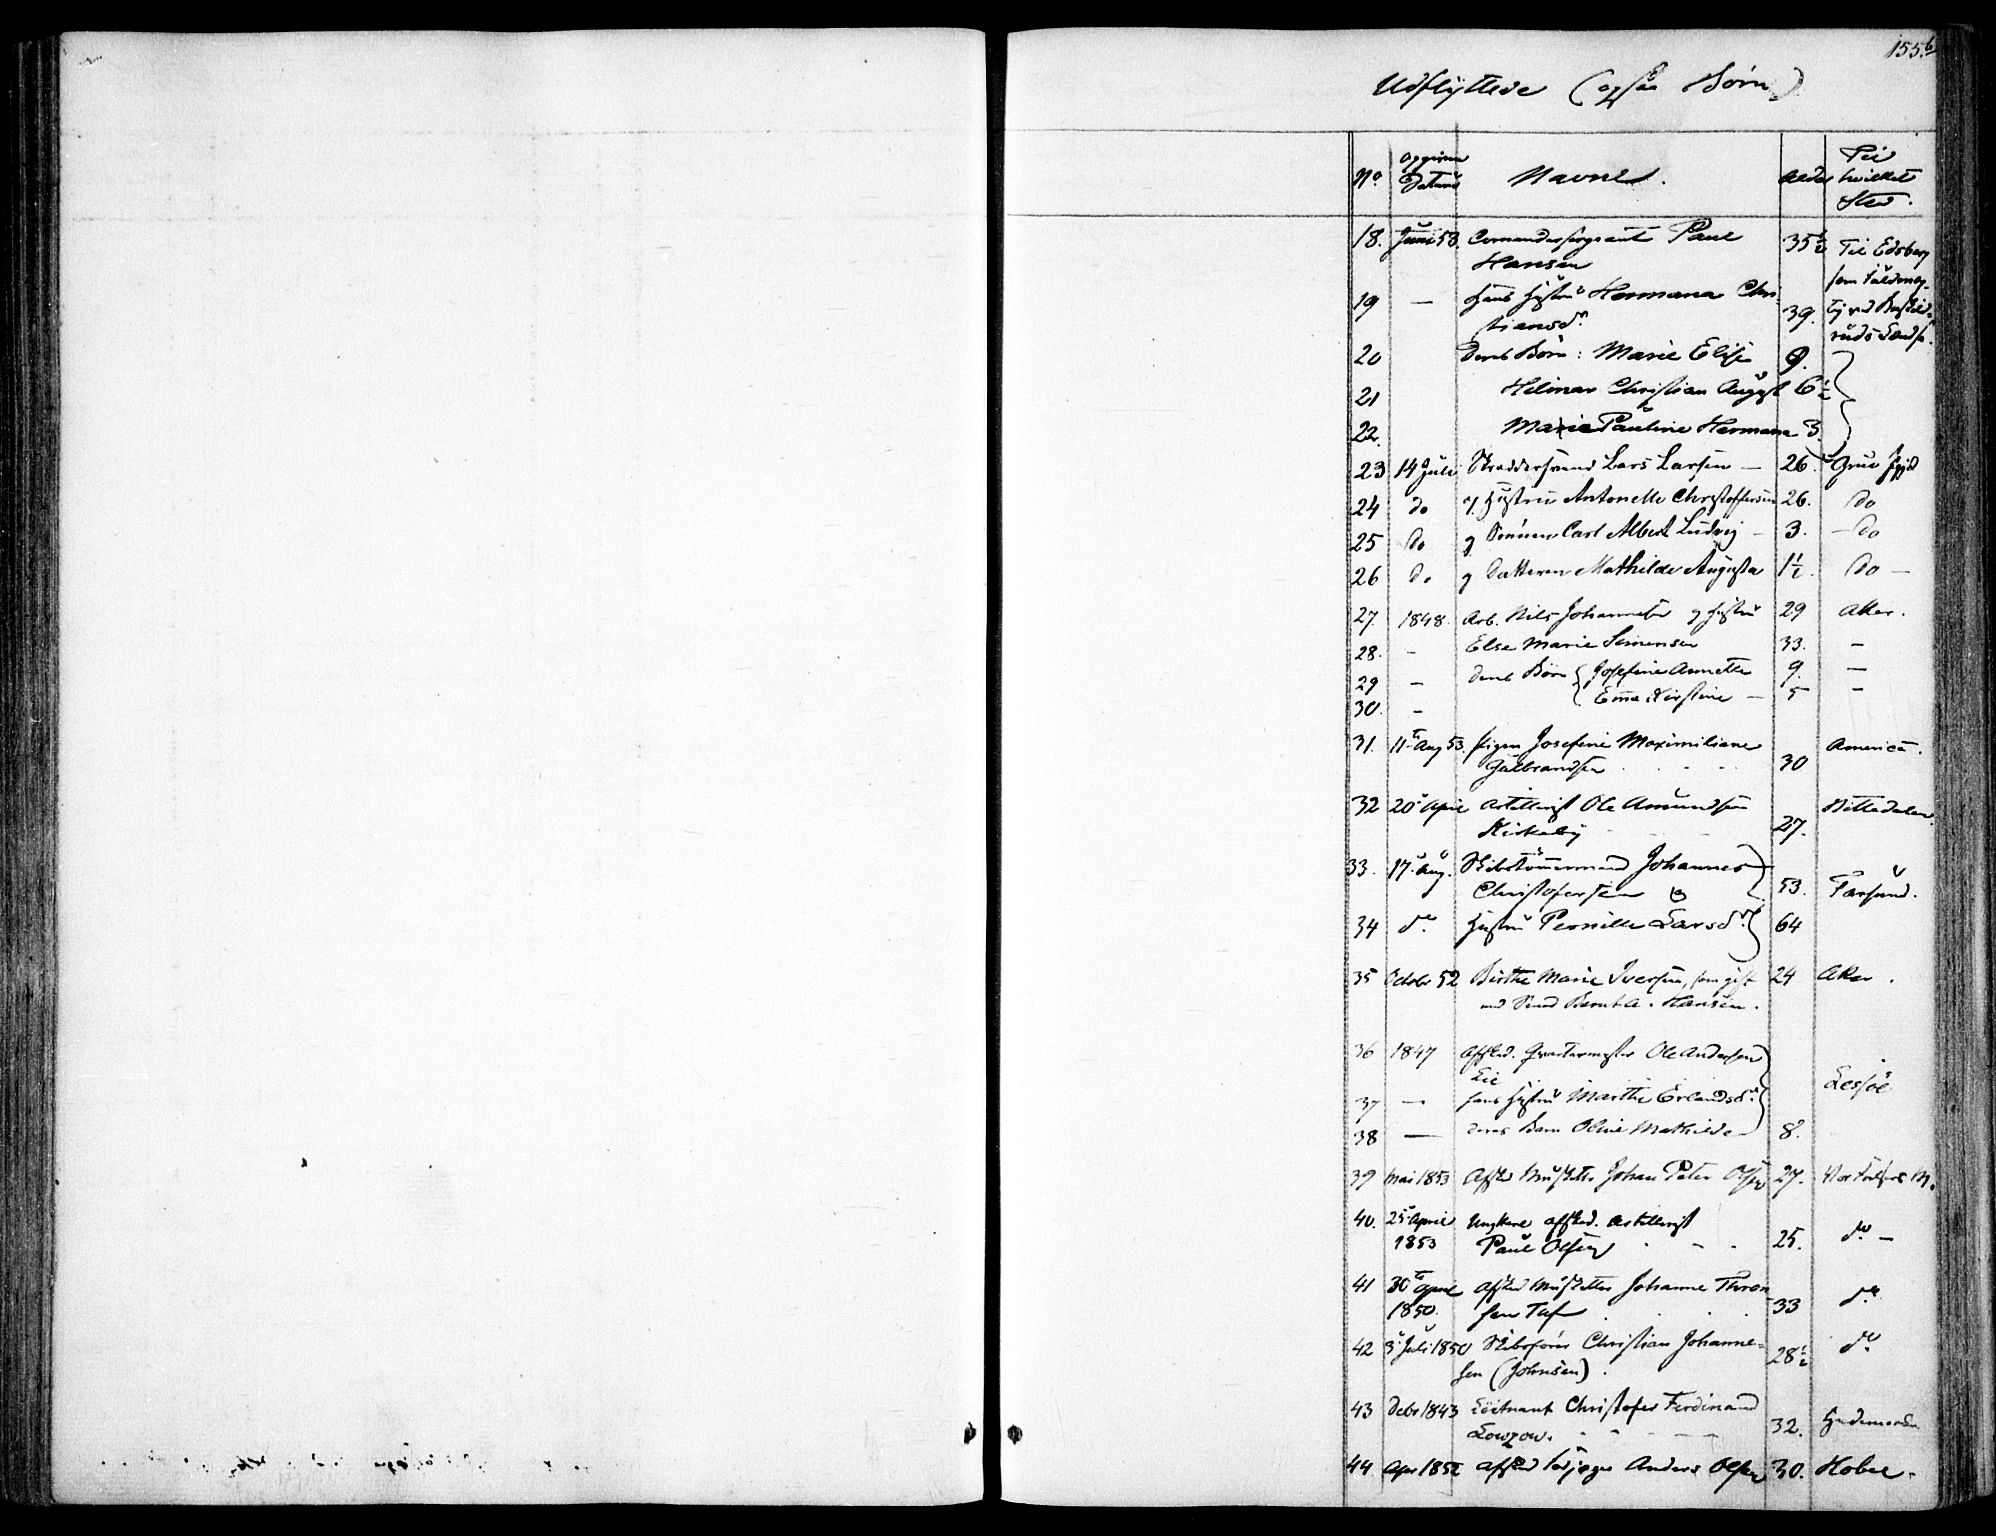 155.b
Udflyttede (ogsaa Børn)
No Opgivne Datums Navne. Alder Til hvilket Sted.
18. Juni 53. Comandersergeant Paul 35½ Til Edsberg
Hansen som
19 — Hans Hustru Hermana Chri- 39. ved Buskerud-
stiansdr.
20 Deres Børn: Marie Elise 9.
21 Hilmar Christian August 6½
22. Marie Pauline Hermana 3.
23 14 Juli Skræddersvend Lars Larsen — 26. Grue
24 do og Hustru Antonette Christoffersen 26. do
25 do og Sønnen Carl Albert Ludvig — 3. — do
26 do og Datteren Mathilde Augusta 1½ do —
27. 1848. Arb. Nils Johannesen og Hustru 29 Aker.
28. — Else Marie Simensen 33. —
29 — deres Børn { Josefine Annette 9. —
30. — Emma Kirstine — 5 —
31. 11te Aug 53. Pigen Josefine Maximiliane America.
Gulbrandsen 30
32 20de April Artillerist Ole Amundsen Nittedalen.
Kirkeby 27.
33. 17de Aug. Skibstømmermand Johannes
Christofersen & 53. Farsund.
34 do Hustru Pernille Larsdr. 64
35 Octobr 52 Birthe Marie Iversen, som gift 24 Aker.
med Svend Bernt A. Hansen.
36 1847 Afsked. Qvartermester Ole Andersen
Lie Lesjøe
37 — hans Hustru Marthe Erlandsdr.
38 — deres Barn Oline Mathilde 8.
39 Mai 1853 Afsked Musketer Johan Peter Olsen 27. Vor Frelsers M.
40. 25de April Ungkarl afsked. Artillerist
1853 Paul Olsen 25. do —
41 30te April Afsked Musketer Johannes Thron- do
1850. sen Tuf 33
42 3de Juli 1850 Skibsfører Christian Johanne- 28½ do
sen (Johnsen).
43 Debr 1843 Løitnant Christofer Ferdinand
Lowzow. 32. Hedemarken
44. Apr 1852 afsked Anders Olsen 30. Hobøl.